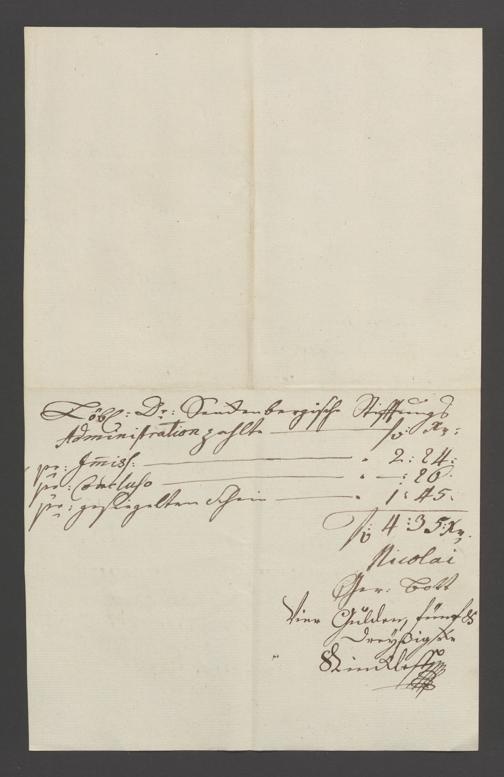 Löbl: Dr: Senckenbergische Stifftungs
Administration zahlte — fl: Xr:
pr: Immiss: — " 2: 24:
pr: Concluso — " —: 26:
pr: gesiegelten Schein — " 1: 45:
fl: 4: 35: Xr.
Nicolai
Ger: Bott
Vier Gulden, fünf &
dreyßig Xr